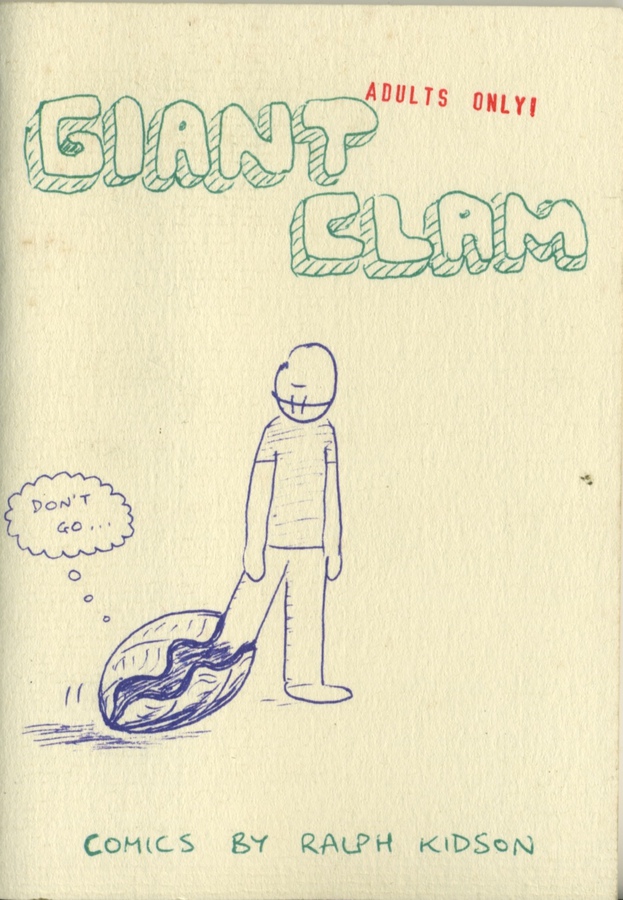 ADULTS ONLY!
GIANT
CLAM
DON'T
GO...
COMICS BY RALPH KIDSON